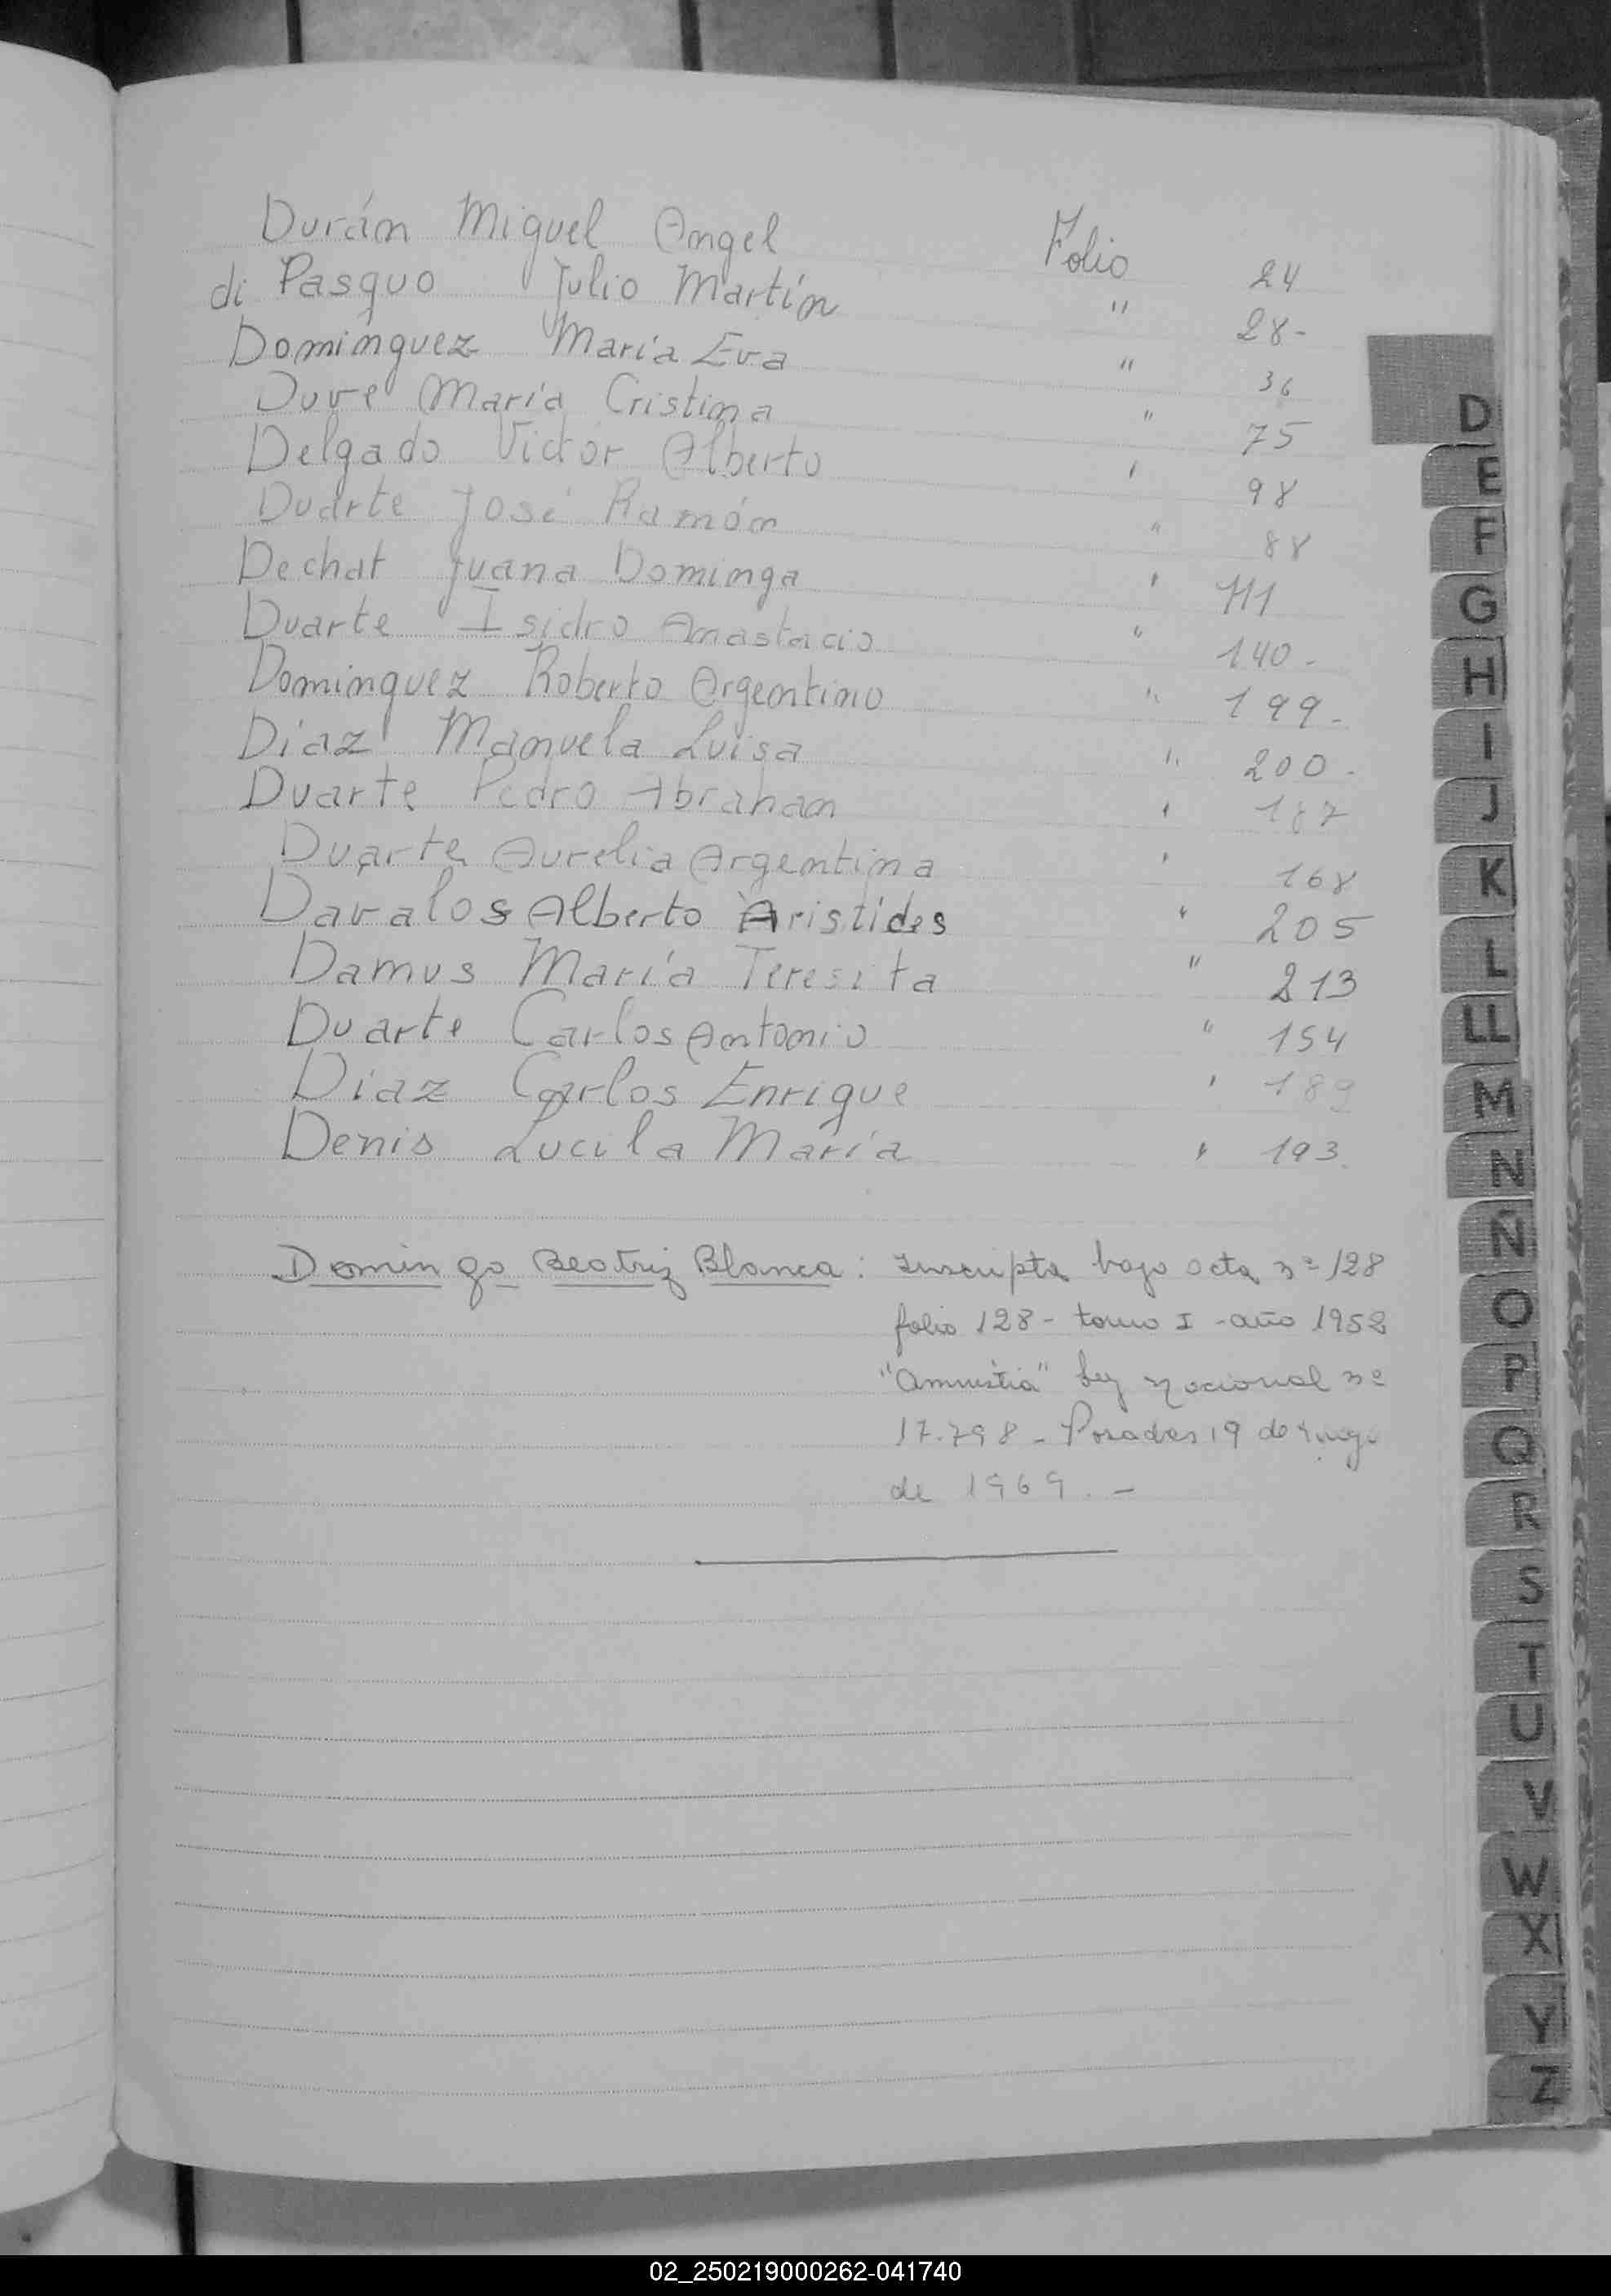 Durán Miguel Angel Folio 24
di Pasquo Julio Martín " 28-
Domínguez María Eva " 36
Duve María Cristina " 75
Delgado Victor Alberto " 98
Duarte José Ramón " 88
Dechat Juana Dominga " 111
Duarte Isidro Anastacio " 140-
Dominguez Roberto Argentino " 199-
Diaz Manuela Luisa " 200-
Duarte Pedro Abraham " 187
Duarte Aurelia Argentina " 168
Davalos Alberto Aristides " 205
Damus María Teresita " 213
Duarte Carlos Antonio " 154
Diaz Carlos Enrique " 189
Denis Lucila María " 193.
Domingo Beatriz Blanca: Inscripta bajo acta nº 128
folio 128 - tomo I - año 1952
"Amnistia" Ley nacional nº
17.798 - Posadas 19 de
de 1969. -
D
E
F
G
H
I
J
K
L
LL
M
N
Ñ
O
P
Q
R
S
T
U
V
W
X
Y
Z
02_250219000262-041740